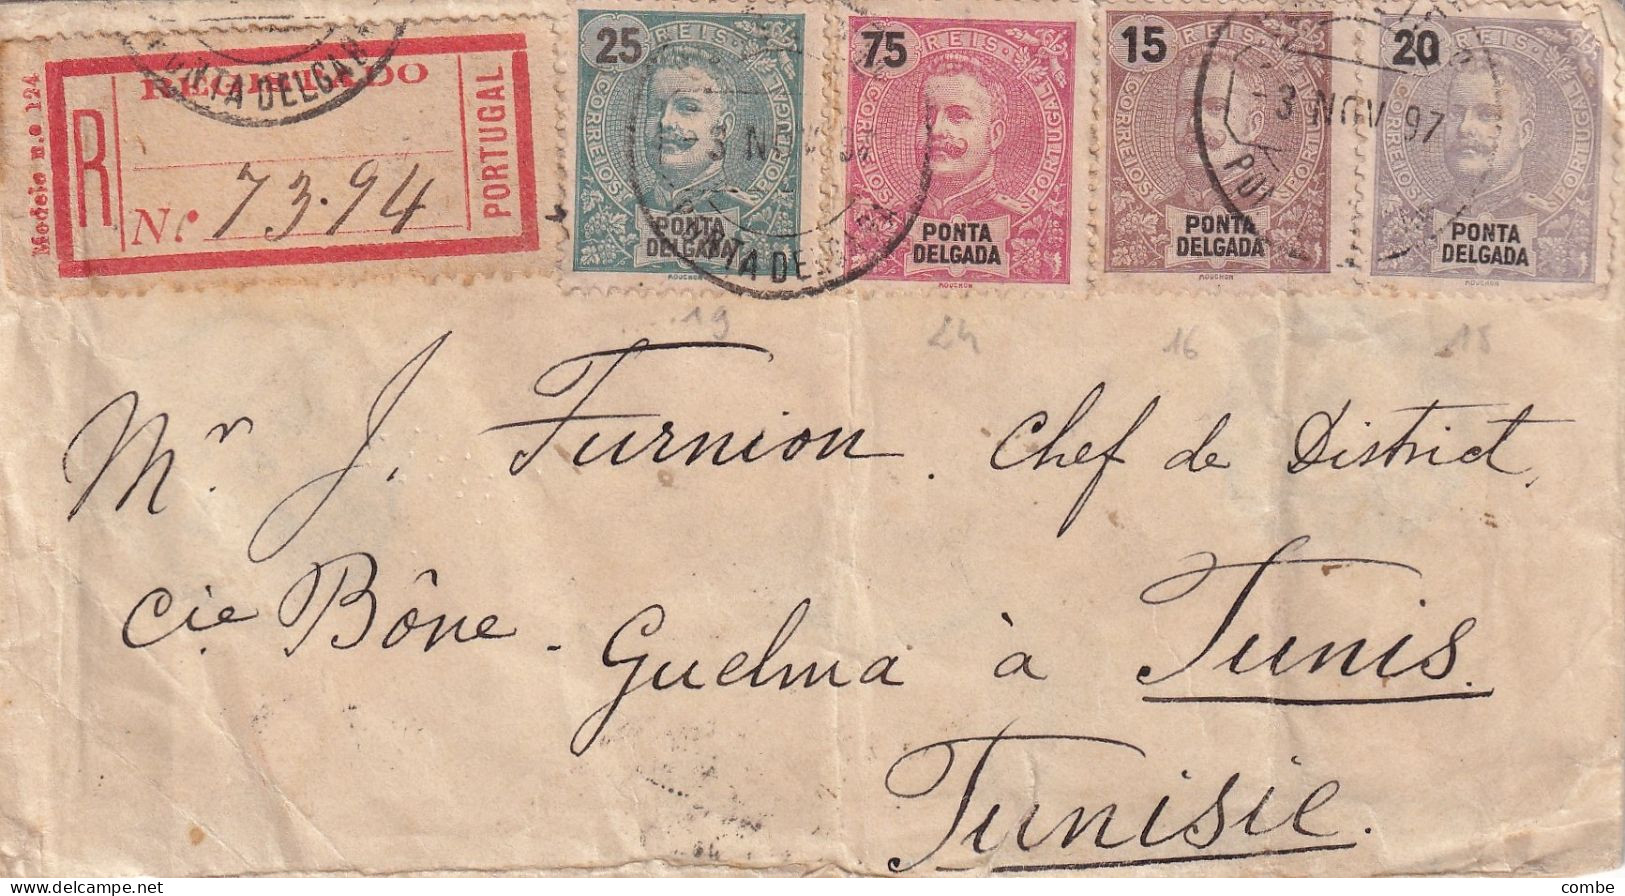 Modelo n.º 124
R
REGISTADO
Nº 7394
PORTUGAL
PONTA DELGADA
25
REIS
CORREIOS
PORTUGAL
PONTA
DELGADA
MOUCHON
75
REIS
CORREIOS
PORTUGAL
PONTA
DELGADA
MOUCHON
15
REIS
CORREIOS
PORTUGAL
PONTA
DELGADA
MOUCHON
20
REIS
CORREIOS
PORTUGAL
PONTA
DELGADA
MOUCHON
3 NOV 97
PONTA DELGADA
3 NOV 97
19 24 16 15
Mr J. Furnion. Chef de District,
Cie Bône - Guelma à Tunis.
Tunisie.
combe